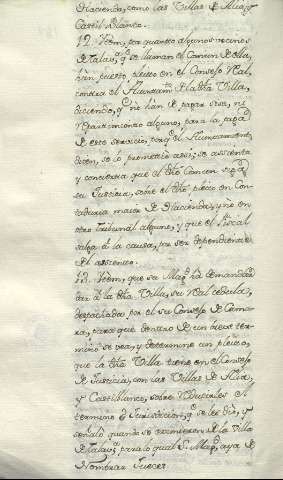 Hacienda, como las Villas de Mija, y
Castil Blanco.
12. Yttem, por quanto algunos vecinos
de Talaȷ, qᵉ se llaman el Comun de ella,
han puesto pleito en el Consejo Rˡ,
contra el Aiuntamᵗᵒ de la dʰᵃ Villa,
diciendo, qᵉ no han de pagar sisa, ni
Repartimiento alguno, para la paga
de este servicio, porqᵉ el Aiuntamiento,
dicen, se lo prometio assi; se assienta
y concierta que al dʰᵒ Comun se
su Justicia, sobre el dʰᵒ pleito en Con-
taduria maior de Hacienda, y no en
otro tribunal alguno, y que el fiscal
salga à la causa, por ser dependiente
del assiento.
13. Yttem, que su Magᵈ ha de mandar
dar à la dʰᵃ Villa, su Real cedula,
despachada por el su Consejo de Cama-
ra, para que dentro de un breve ter-
mino se vea, y determine un pleito,
que la dʰᵃ Villa tiene en el Consejo
de Justicia, con las Villas de Mija,
y Castilblanco, sobre Reducirles el
termino è Jurisdiccion qᵉ se les dio, y
señalò quando se eximieron de la Villa
de Talaȷ, para lo qual S. Magᵈ aya de
Nombrar Jueces.